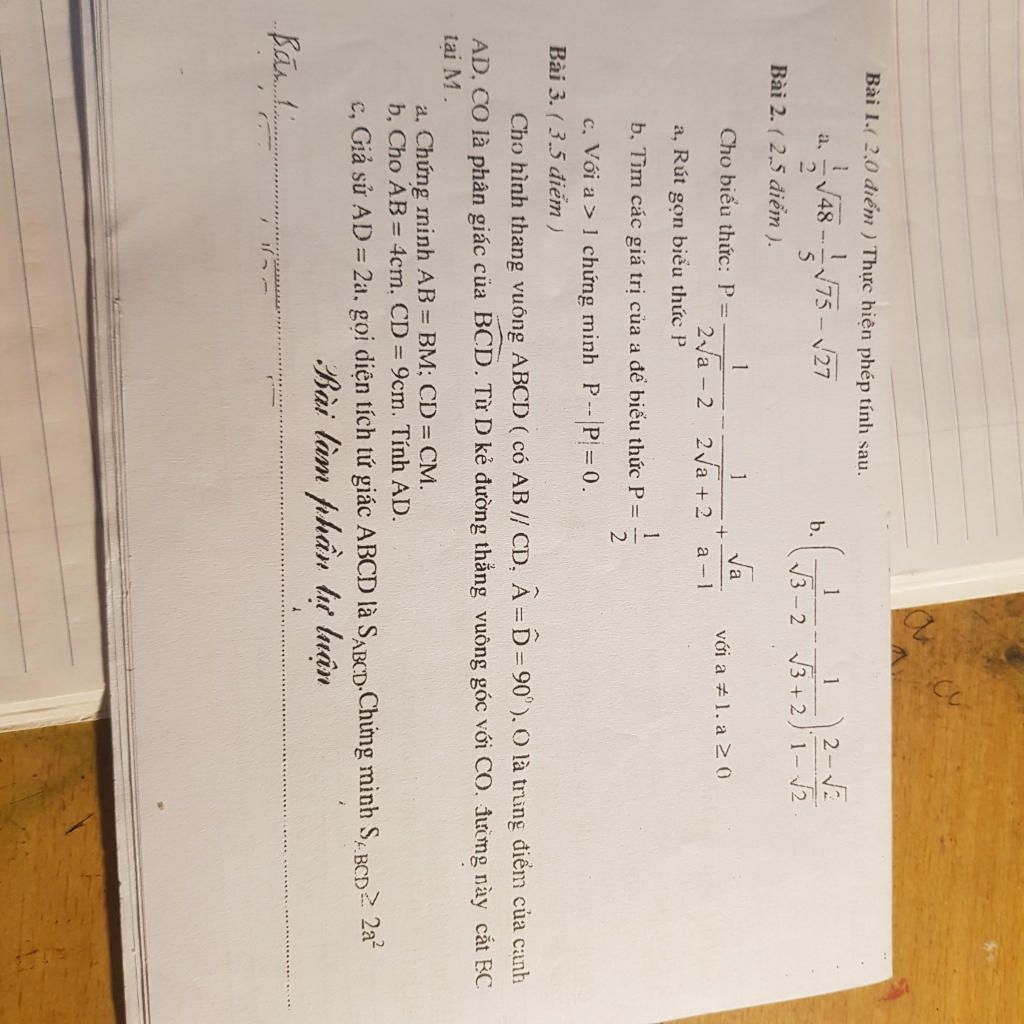 Bài 1.( 2,0 điểm ) Thực hiện phép tính sau.
a, \frac{1}{2}\sqrt{48} - \frac{1}{5}\sqrt{75} - \sqrt{27}
b. \left(\frac{1}{\sqrt{3}-2} - \frac{1}{\sqrt{3}+2}\right).\frac{2-\sqrt{2}}{1-\sqrt{2}}.
Bài 2. ( 2,5 điểm ).
Cho biểu thức: P = \frac{1}{2\sqrt{a}-2} - \frac{1}{2\sqrt{a}+2} + \frac{\sqrt{a}}{a-1} với a ≠ 1, a ≥ 0
a, Rút gọn biểu thức P
b, Tìm các giá trị của a để biểu thức P = \frac{1}{2}
c, Với a > 1 chứng minh P - |P| = 0.
Bài 3. ( 3,5 điểm )
Cho hình thang vuông ABCD ( có AB // CD, \hat{A} = \hat{D} = 90^0 ). O là trung điểm của cạnh
AD, CO là phân giác của \widehat{BCD}. Từ D kẻ đường thẳng vuông góc với CO, đường này cắt BC
tại M .
a, Chứng minh AB = BM; CD = CM.
b, Cho AB = 4cm, CD = 9cm. Tính AD.
c, Giả sử AD = 2a, gọi diện tích tứ giác ABCD là S_{ABCD}.Chưng minh S_{ABCD} ≥ 2a^2
Bài làm phần tự luận
Bài 1: